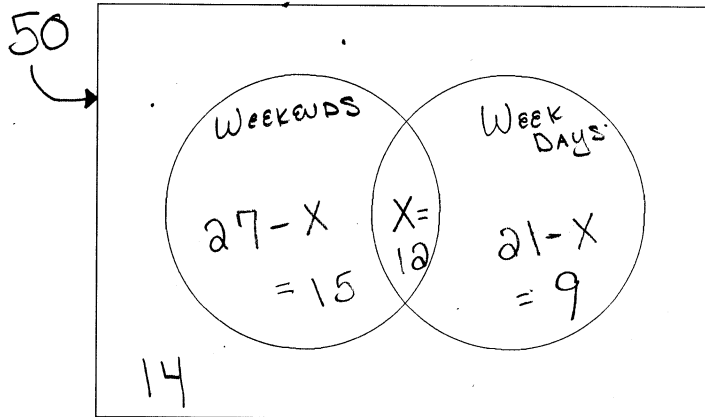 50
WEEKENDS
WEEK
DAYS
27-X
= 15
X=
12
21-X
= 9
14